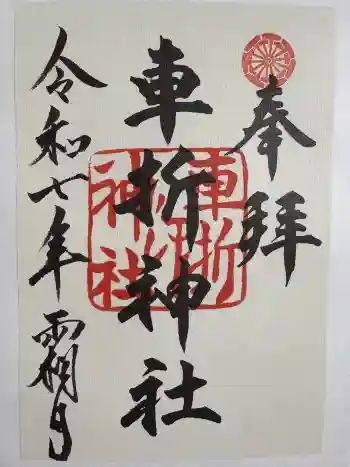 奉拝
車折神社
車折神社
令和七年霜月